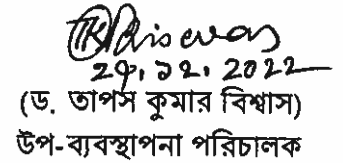 TKBiswas
29.12.2022
(ড. তাপস কুমার বিশ্বাস)
উপ-ব্যবস্থাপনা পরিচালক